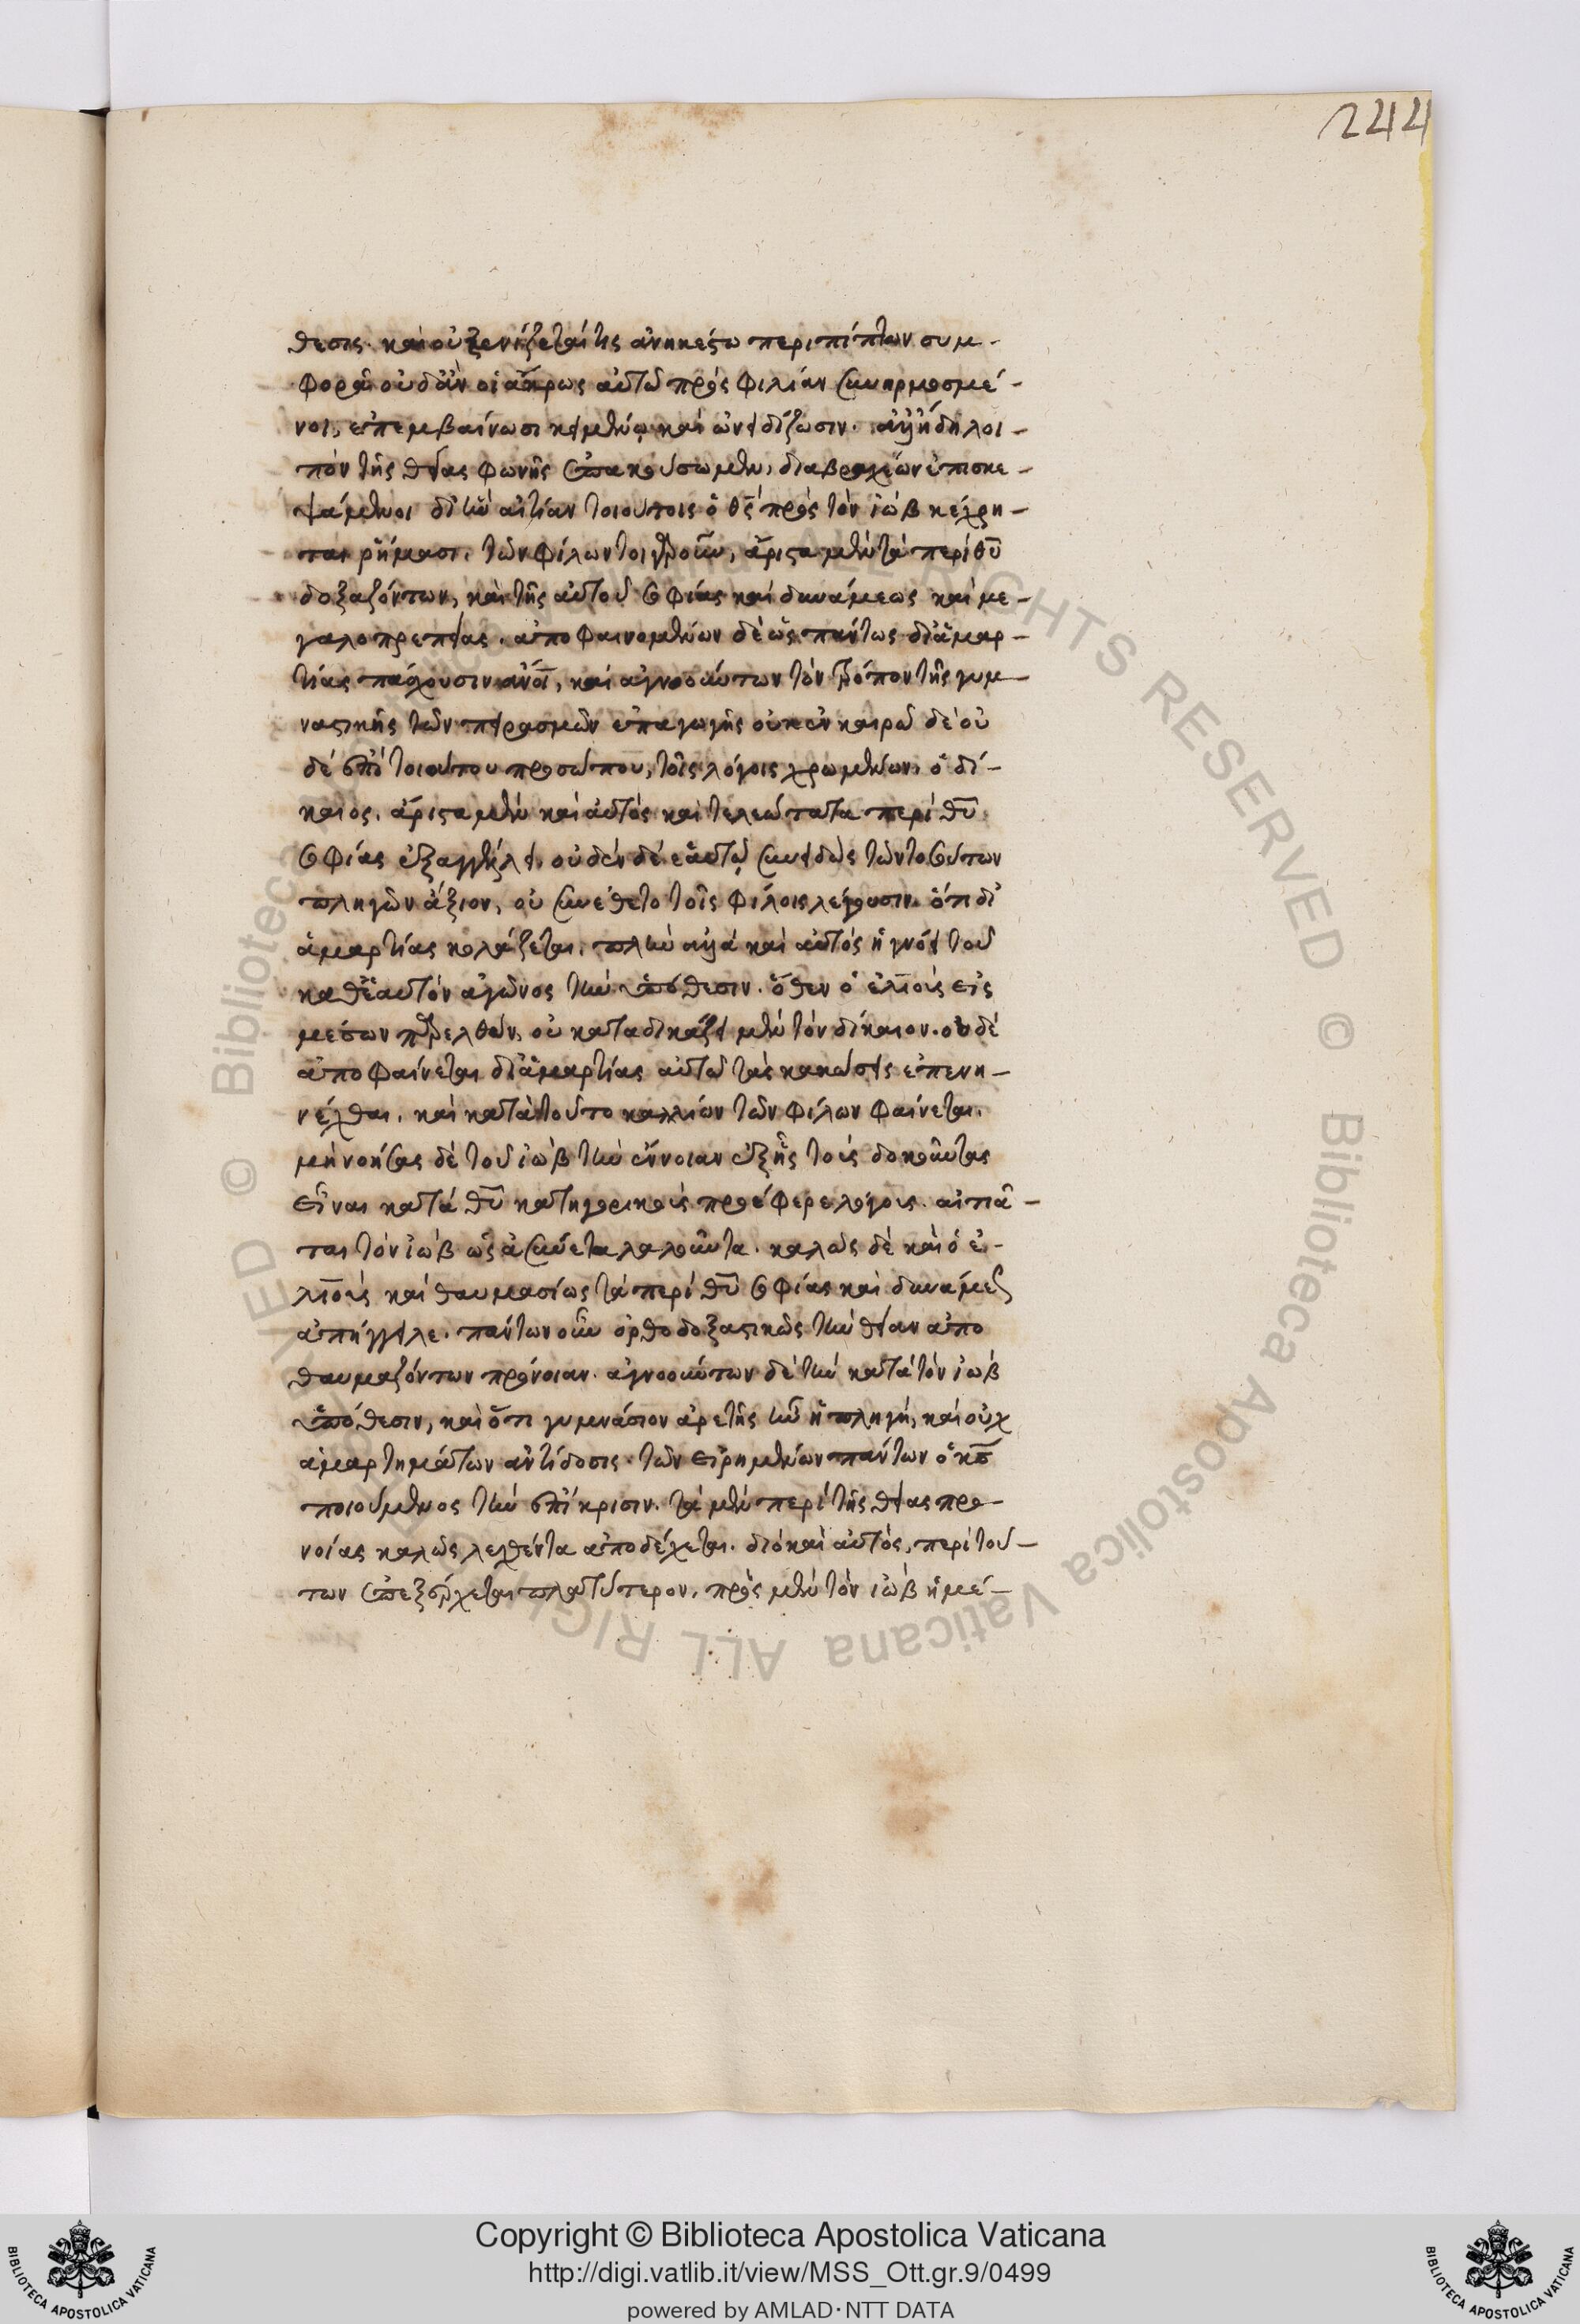 244
θεσις. καὶ οὐ ξενίζεταί τις ἀνηκέστω περιπίπτων συμ-
φορᾶ οὐδ' ἂν οἱ αὐτῶ πρὸς φιλίαν συνηρμοσμέ-
νοι, ἐπεμβαίνωσι κειμένω καὶ ὀνειδίζωσιν. ἀλλ' ἤδη λοι-
πὸν τῆς θείας φωνῆς ὑπακούσωμεν, διὰ βραχέων ἐπισκε-
ψάμενοι δι' ἣν αἰτίαν τοιούτοις ὁ θς πρὸς τὸν ἰὼβ κέχρη-
ται ῥήμασι. τῶν φίλων τοιγαροῦν, ἄριστα μὲν τὰ περὶ θυ
δοξαζόντων, καὶ τῆς αὐτοῦ σοφίας καὶ δυνάμεως καὶ με-
γαλοπρεπείας. ἀποφαινομένων δὲ ὡς πάντως δι' ἁμαρ-
τίας πάσχουσιν ἄνοι, καὶ ἀγνοούντων τὸν τρόπον τῆς γυμ-
ναστικῆς τῶν πειρασμῶν ἐπαγωγῆς οὐκ ἐν καιρῶ δὲ οὐ
δὲ ἐπὶ τοιούτου προσώπου, τοῖς λόγοις χρωμένων, ὁ δί-
καιος. ἄριστα μὲν καὶ αὐτὸς καὶ τελεώτατα περὶ θυ
σοφίας ἐξαγγέλλει. οὐδὲν δὲ ἑαυτῶ συνειδὼς τῶν τοσούτων
πληγῶν ἄξιον, οὐ συνέθετο τοῖς φίλοις λέγουσιν. ὅτι δι'
ἁμαρτίας κολάζεται. πλὴν ἀλλὰ καὶ αὐτὸς ἠγνόει τοῦ
καθ' ἑαυτὸν ἀγῶνος τὴν ὑπόθεσιν. ὅθεν ὁ ἐλιοὺς εἰς
μέσον παρελθὼν, οὐ καταδικάζει μὲν τὸν δίκαιον. οὐδὲ
ἀποφαίνεται δι' ἁμαρτίας αὐτῶ τὰς κακώσεις ἐπενη-
νέχθαι. καὶ κατὰ τοῦτο καλλίων τῶν φίλων φαίνεται.
μὴ νοήσας δὲ τοῦ ἰὼβ τὴν ἔννοιαν ἐξ ἧς τοὺς δοκοῦντας
εἶναι κατὰ θυ κατηγορικοὺς προέφερε λόγους. αἰτιᾶ-
ται τὸν ἰὼβ ὡς ἀσύνετα λαλοῦντα. καλῶς δὲ καὶ ὁ ἐ-
λιοὺς καὶ θαυμασίως τὰ περὶ θυ σοφίας καὶ δυνάμεως
ἀπήγγειλε. πάντων οὖν ὀρθοδοξαστικῶς τὴν θείαν ἀπο
θαυμαζόντων πρόνοιαν. ἀγνοούντων δὲ τὴν κατὰ τὸν ἰὼβ
ὑπόθεσιν, καὶ ὅτι γυμνάσιον ἀρετῆς ἦν ἡ πληγὴ, καὶ οὐχ
ἁμαρτημάτων ἀντίδοσις. τῶν εἰρημένων πάντων ὁ κς
ποιούμενος τὴν ἐπίκρισιν. τὰ μὲν περὶ τῆς θείας προ-
νοίας καλῶς λεχθέντα ἀποδέχεται. διὸ καὶ αὐτὸς, περὶ τού-
των ἐπεξέρχεται πλατύτερον. πρὸς μὲν τὸν ἰὼβ ἡμέ-
Copyright © Biblioteca Apostolica Vaticana
http://digi.vatlib.it/view/MSS_Ott.gr.9/0499
powered by AMLAD · NTT DATA
BIBLIOTECA APOSTOLICA VATICANA
BIBLIOTECA APOSTOLICA VATICANA
© Biblioteca Apostolica Vaticana ALL RIGHTS RESERVED